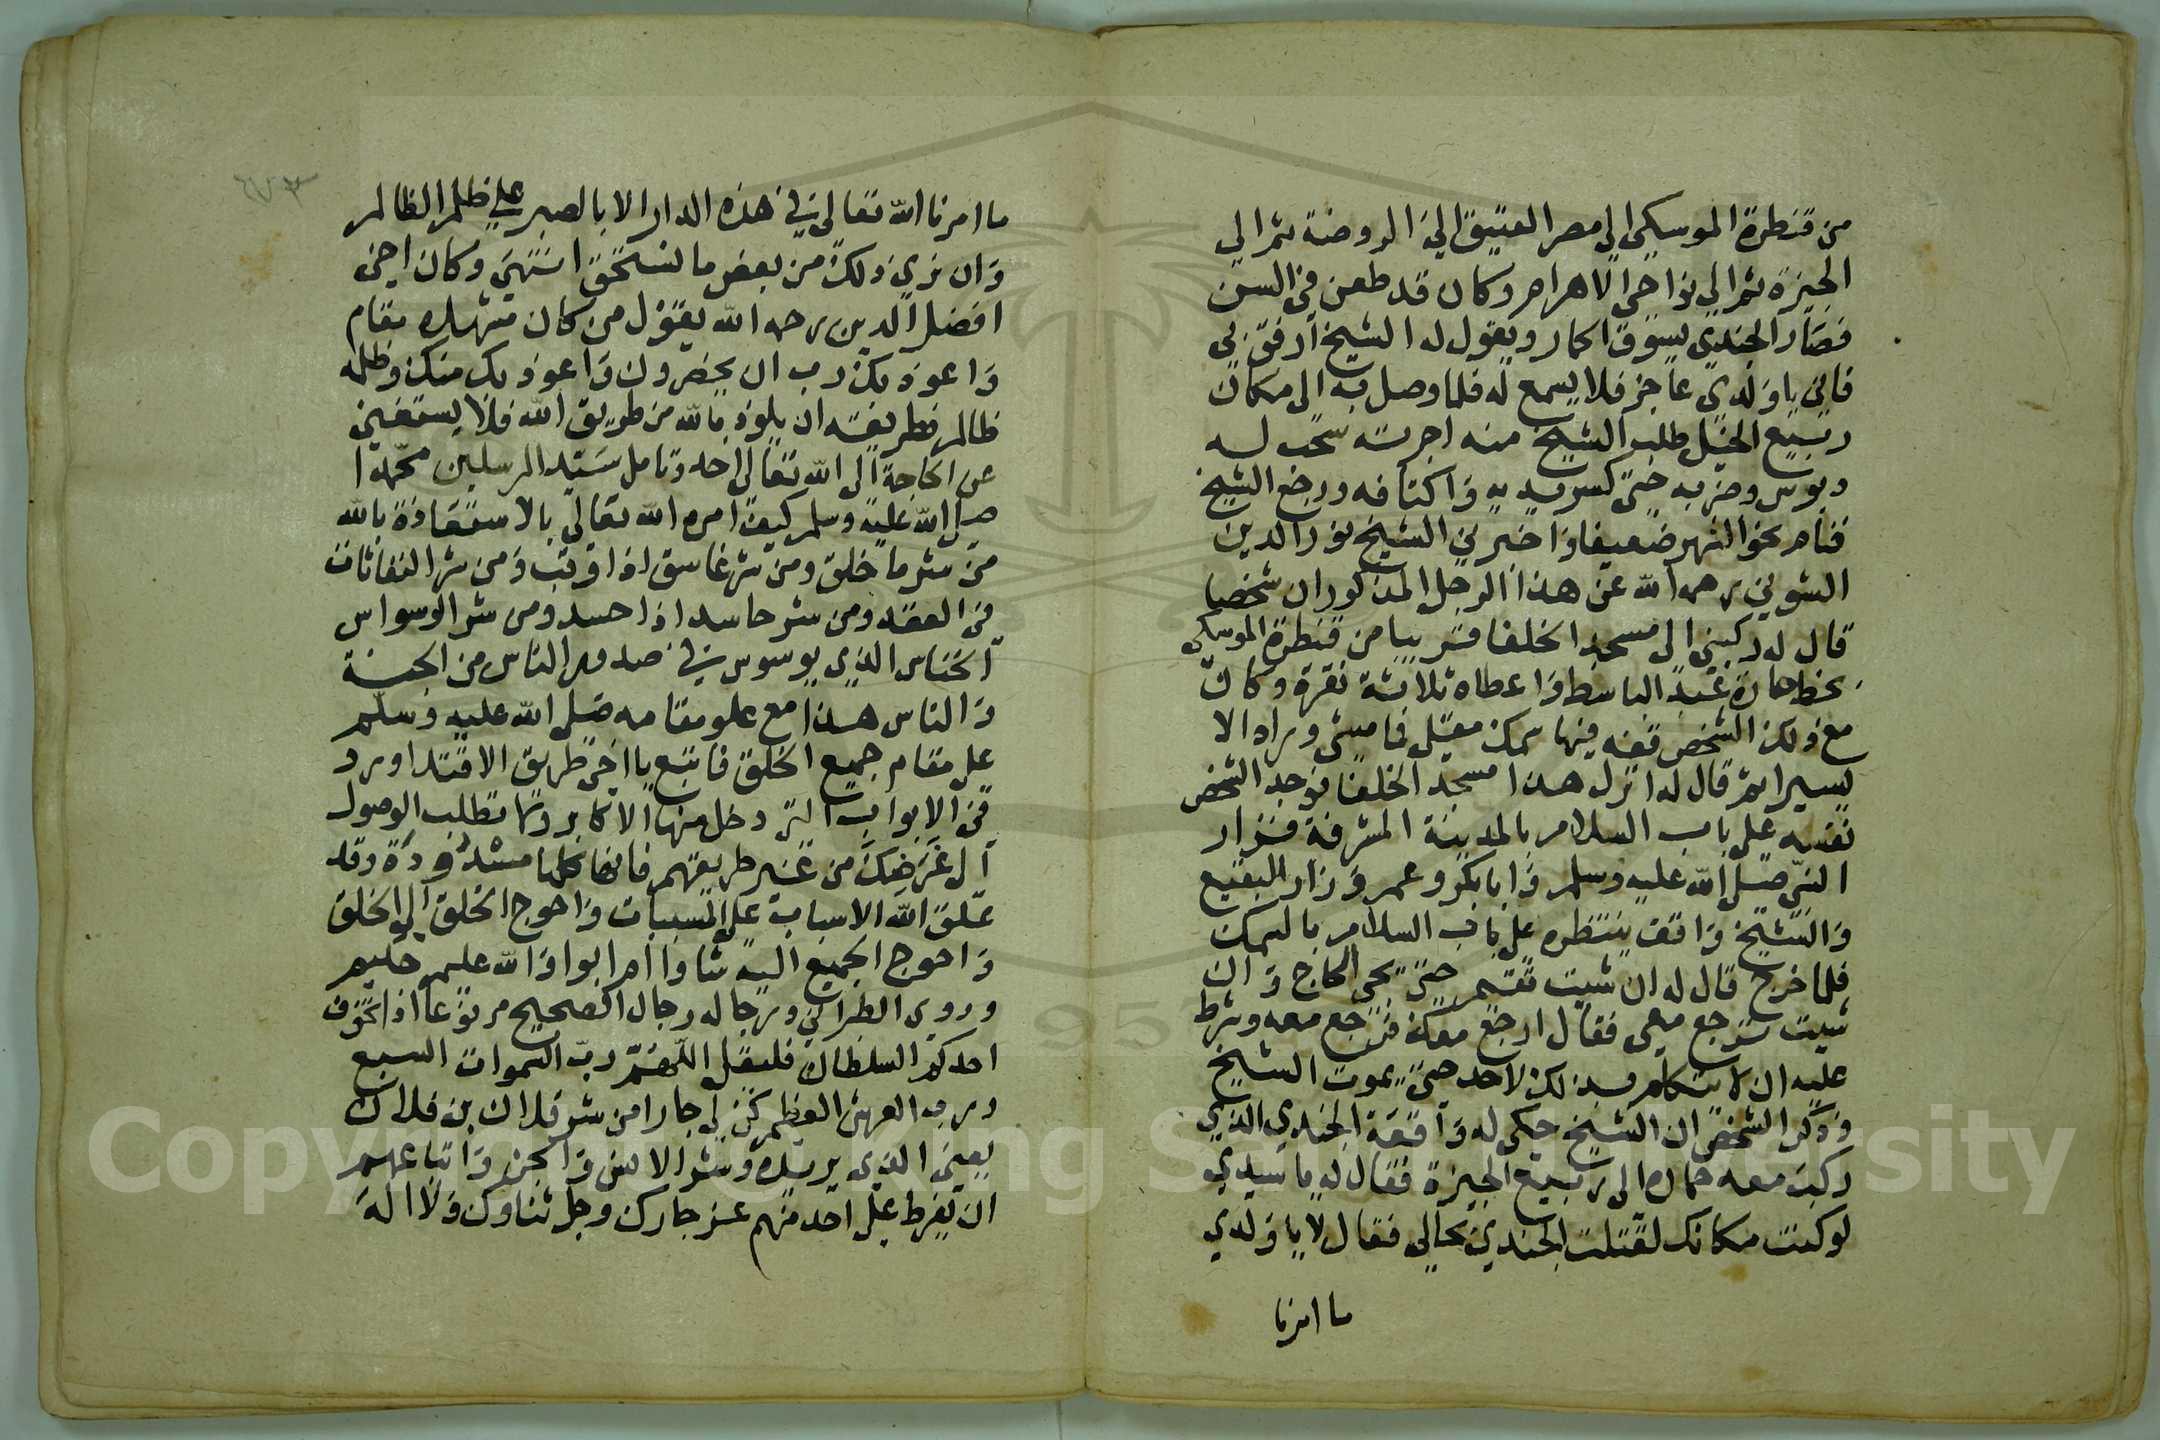 من قنطرة الموسكي الى مصر العتيق الى الروضة ثم الى
الجيزة ثم الى نواحي الاهرام وكان قد طعن في السن
فصار الجندي يسوق الحمار ويقول له الشيخ ارفق بي
فاني يا ولدي عاجز فلا يسمع له فلما وصل به الى مكان
ربيع الخيل طلب الشيخ منه اجرته سحب له
دبوس وضربه حتى كسر يديه واكتافه ورجع الشيخ
فنام نحو الشهر ضعيفا واخبرني الشيخ نور الدين
الشوني رحمه الله عن هذا الرجل المذكور ان شخصا
قال له ركبني الى مسجد الخلفا قريبا من قنطرة الموسكي
بخط عبد الباسط واعطاه ثلاثة نقرة وكان
مع ذلك الشخص قفه فيها سمك مقلي فامشي وراه الا
يسيرا ثم قال له انزل هذا مسجد الخلفا فوجد الشخص
نفسه على باب السلام بالمدينة المشرفة فزار
النبي صلى الله عليه وسلم وابا بكر وعمر وزار البقيع
والشيخ واقف ينتظره على باب السلام بالسمك
فلما خرج قال له ان شيت تقيم حتى يجي الحاج وان
شيت ترجع معي فقال ارجع معك فرجع معه وشرط
عليه ان لا يتكلم بذلك لاحد حتى يموت الشيخ
وذكر الشخص ان الشيخ حكى له واقعة الجندي الذي
ركب معه حماره الى ربيع الجيزة فقال له يا سيدي
لو كنت مكانك لقتلت الجندي بحالي فقال لا يا ولدي
ما امرنا
ما امرنا الله تعالى في هذه الدار الا بالصبر على ظلم الظالم
وان نري ذلك من بعض ما نستحق انتهى وكان اخي
افضل الدين رحمه الله يقول من كان مشهده مقام
واعوذ بك رب ان يحضرون واعوذ بك منك وظلمه
ظالم فطريقه ان يلوذ بالله من طريق الله فلا يستغني
عن الحاجة الى الله تعالى احد وتامل سيد المرسلين محمدا
صلى الله عليه وسلم كيف امره الله تعالى بالاستعاذة بالله
من شر ما خلق ومن شر غاسق اذا وقب ومن شر النفاثات
في العقد ومن شر حاسد اذا حسد ومن شر الوسواس
الخناس الذي يوسوس في صدور الناس من الجنة
والناس هذا مع علو مقامه صلى الله عليه وسلم
على مقام جميع الخلق فاتبع يا اخي طريق الاقتدا ورد
في الابواب التي دخل منها الاكابر ربما تطلب الوصول
الى غرضك من غير طريقهم فانها كلها مسدودة وقد
علق الله الاسباب على المسببات واحوج الخلق الى الخلق
واحوج الجميع اليه شاوا ام ابوا والله عليم حليم
وروى الطبراني ورجاله رجال الصحيح مرفوعا اذا تخوف
احدكم السلطان فليقل اللهم رب السموات السبع
ورب العرش العظيم كن لي جارا من شر فلان بن فلان
يعني الذي يريده وشر الانس والجن واتباعهم
ان يفرط علي احد منهم عز جارك وجل ثناوك ولا اله